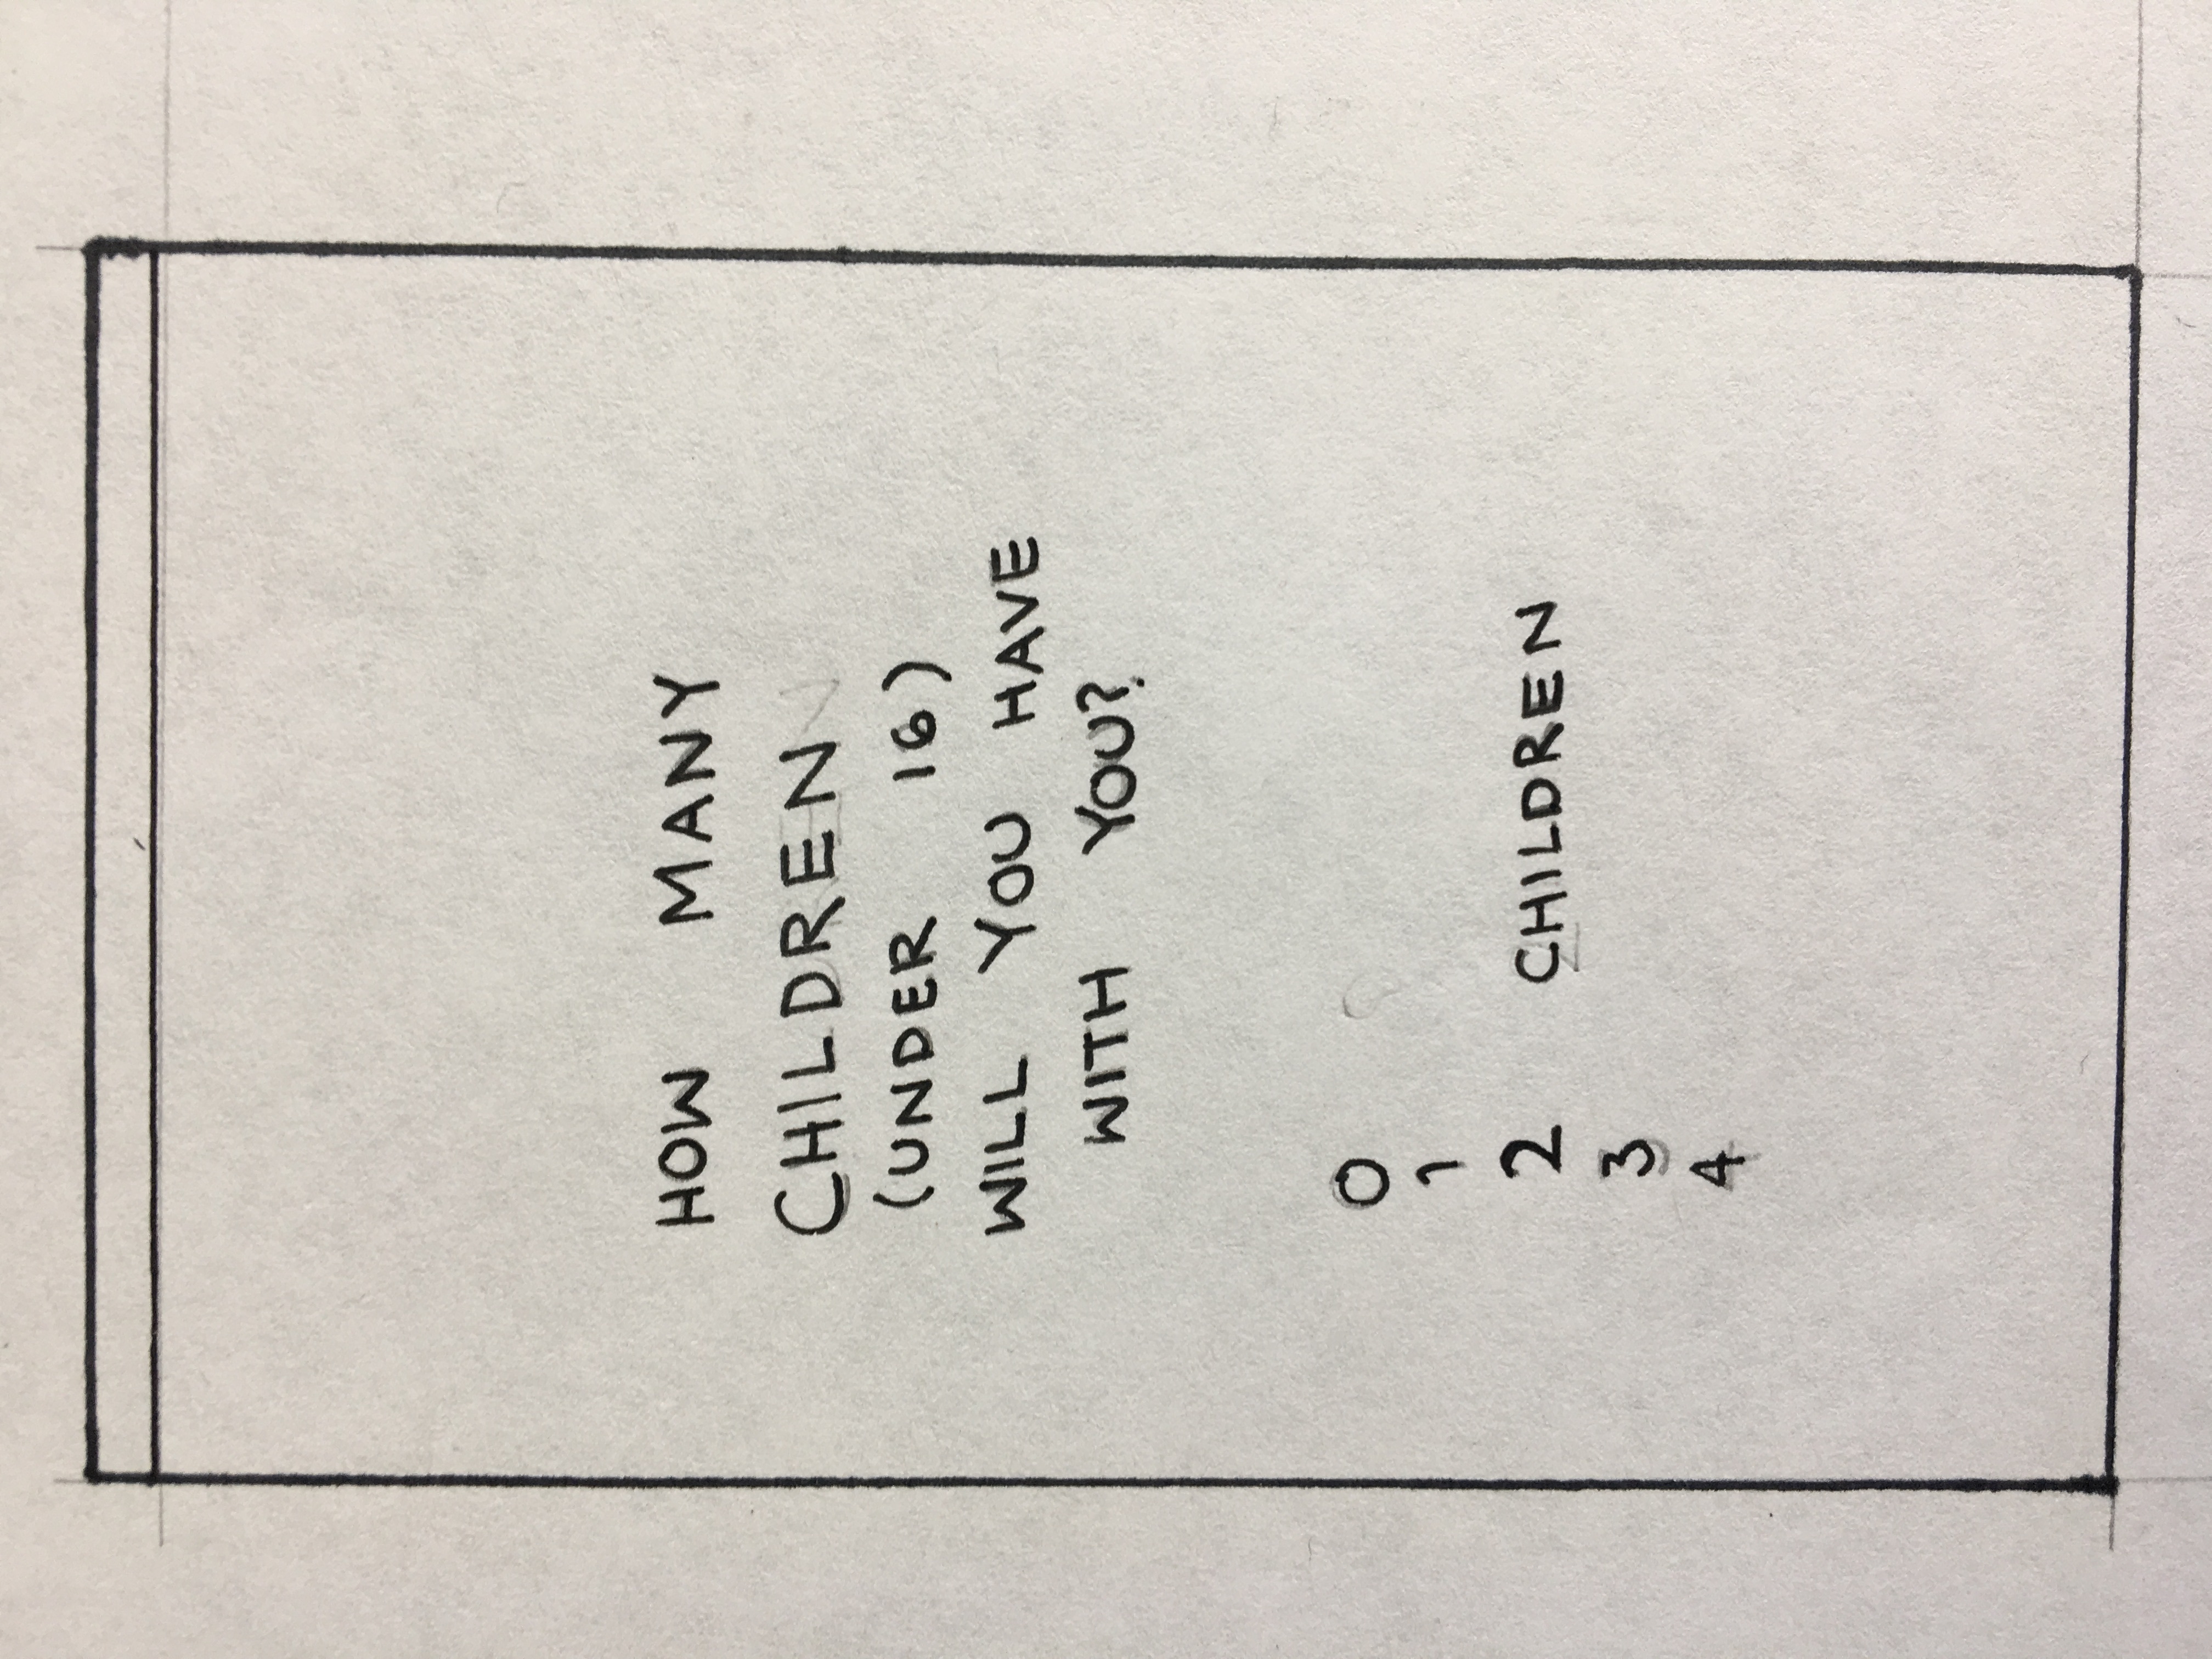 HOW MANY
CHILDREN
(UNDER 16)
WILL YOU HAVE
WITH YOU?
0
1
2 CHILDREN
3
4